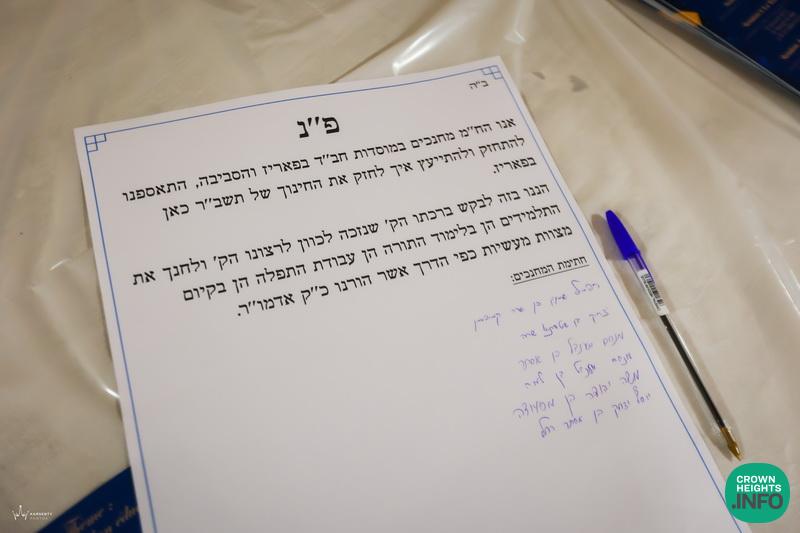 ב"ה
פ"נ
אנו הח"מ מחנכים במוסדות חב"ד בפאריז והסביבה, התאספנו
להתחזק ולהתייעץ איך לחזק את החינוך של תשב"ר כאן
בפאריז.
הננו בזה לבקש ברכתו הק' שנזכה לכוון לרצונו הק' ולחנך את
התלמידים הן בלימוד התורה הן עבודת התפלה הן בקיום
מצוות מעשיות כפי הדרך אשר הורנו כ"ק אדמו"ר.
חתימת המחנכים:
בן שרה
בן שרה
מנחם מענדל בן אסתר
מנחם מענדל בן
משה יהודה בן
יוסף יצחק בן אסתר רחל
CROWN
HEIGHTS
.INFO